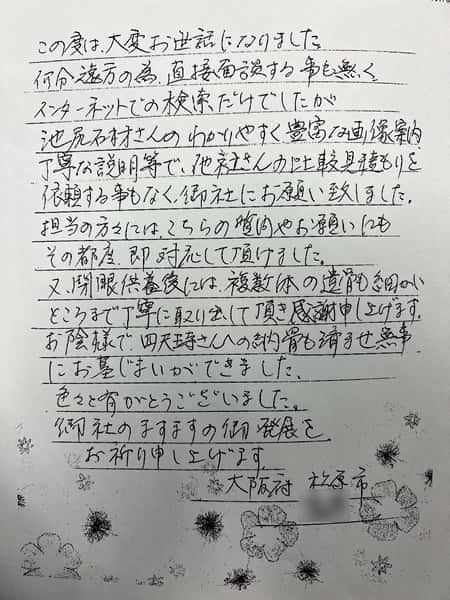 この度は、大変お世話になりました。
何分遠方の為、直接面談する事も無く、
インターネットでの検索だけでしたが
池尻石材さんのわかりやすく豊富な画像案内
丁寧な説明等で、他社さんの比較見積もりを
依頼する事もなく、御社にお願い致しました。
担当の方々には、こちらの質問やお願いにも
その都度、即対応して頂けました。
又、閉眼供養後には、複数体の遺骨も細かい
ところまで丁寧に取り出して頂き感謝申し上げます。
お陰様で、四天王寺さんへの納骨も済ませ無事
にお墓じまいができました。
色々と有がとうございました。
御社のますますの御発展を
お祈り申し上げます。
大阪府 松原市